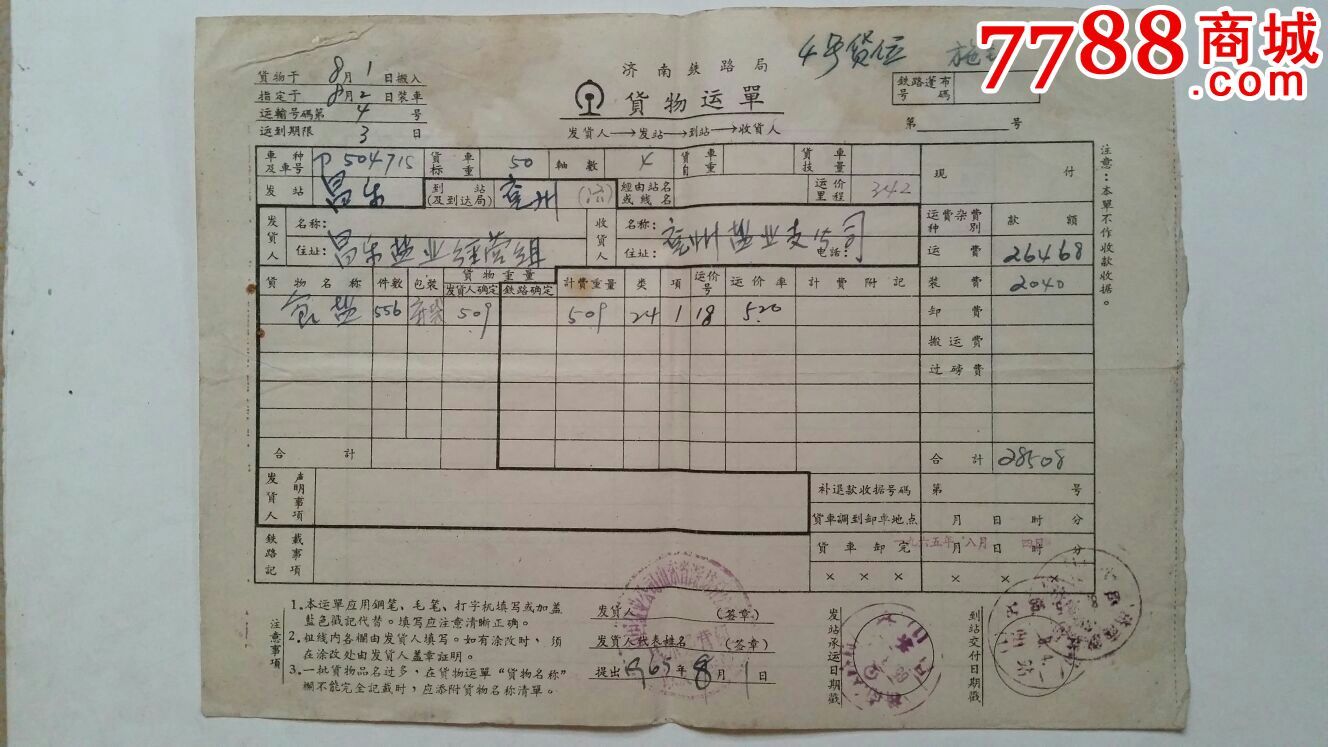 7788商城
.com
4号货位
济南鉄路局
貨物运單
发貨人→发站→到站→收貨人
貨物于8月1日搬入
指定于8月2日装車
运輸号碼第4号
运到期限3日
鉄路蓬布号碼
第 号
車种及車号 P504715 貨車标重 50 軸数 4 貨車自重 貨車技量 現付
发站 昌乐 到站(及到达局) 兖州 (济) 經由站名或线名 运价里程 342
发貨人 名称: 住址: 昌乐盐业经营组 收貨人 名称: 住址: 兖州盐业支公司 电話:
运费杂费种别 款额
运费 26468
貨物名称 件数 包装 貨物重量 发貨人确定 鉄路确定 計费重量 类 項 运价号 运价率 計费附記 装费 2040
食盐 556 509 509 24 1 18 5.20 卸费
搬运费
过磅费
合計 合計 28508
发貨人声明事項 补退款收据号碼 第 号
貨車調到卸車地点 月日时分
鉄路記載事項 貨車卸完 月日时分
一九六五年八月四日
× × × × × ×
注意:本單不作收款收据。
注意事項
1.本运單应用鋼笔、毛笔、打字机填写或加盖
藍色戳記代替。填写应注意清晰正确。
2.粗线内各欄由发貨人填写。如有涂改时,须
在涂改处由发貨人盖章証明。
3.一批貨物品名过多,在貨物运單“貨物名称”
欄不能完全記載时,应添附貨物名称清單。
发貨人 (签章)
发貨人代表姓名 (签章)
提出1965年8月1日
发站承运日期戳
到站交付日期戳